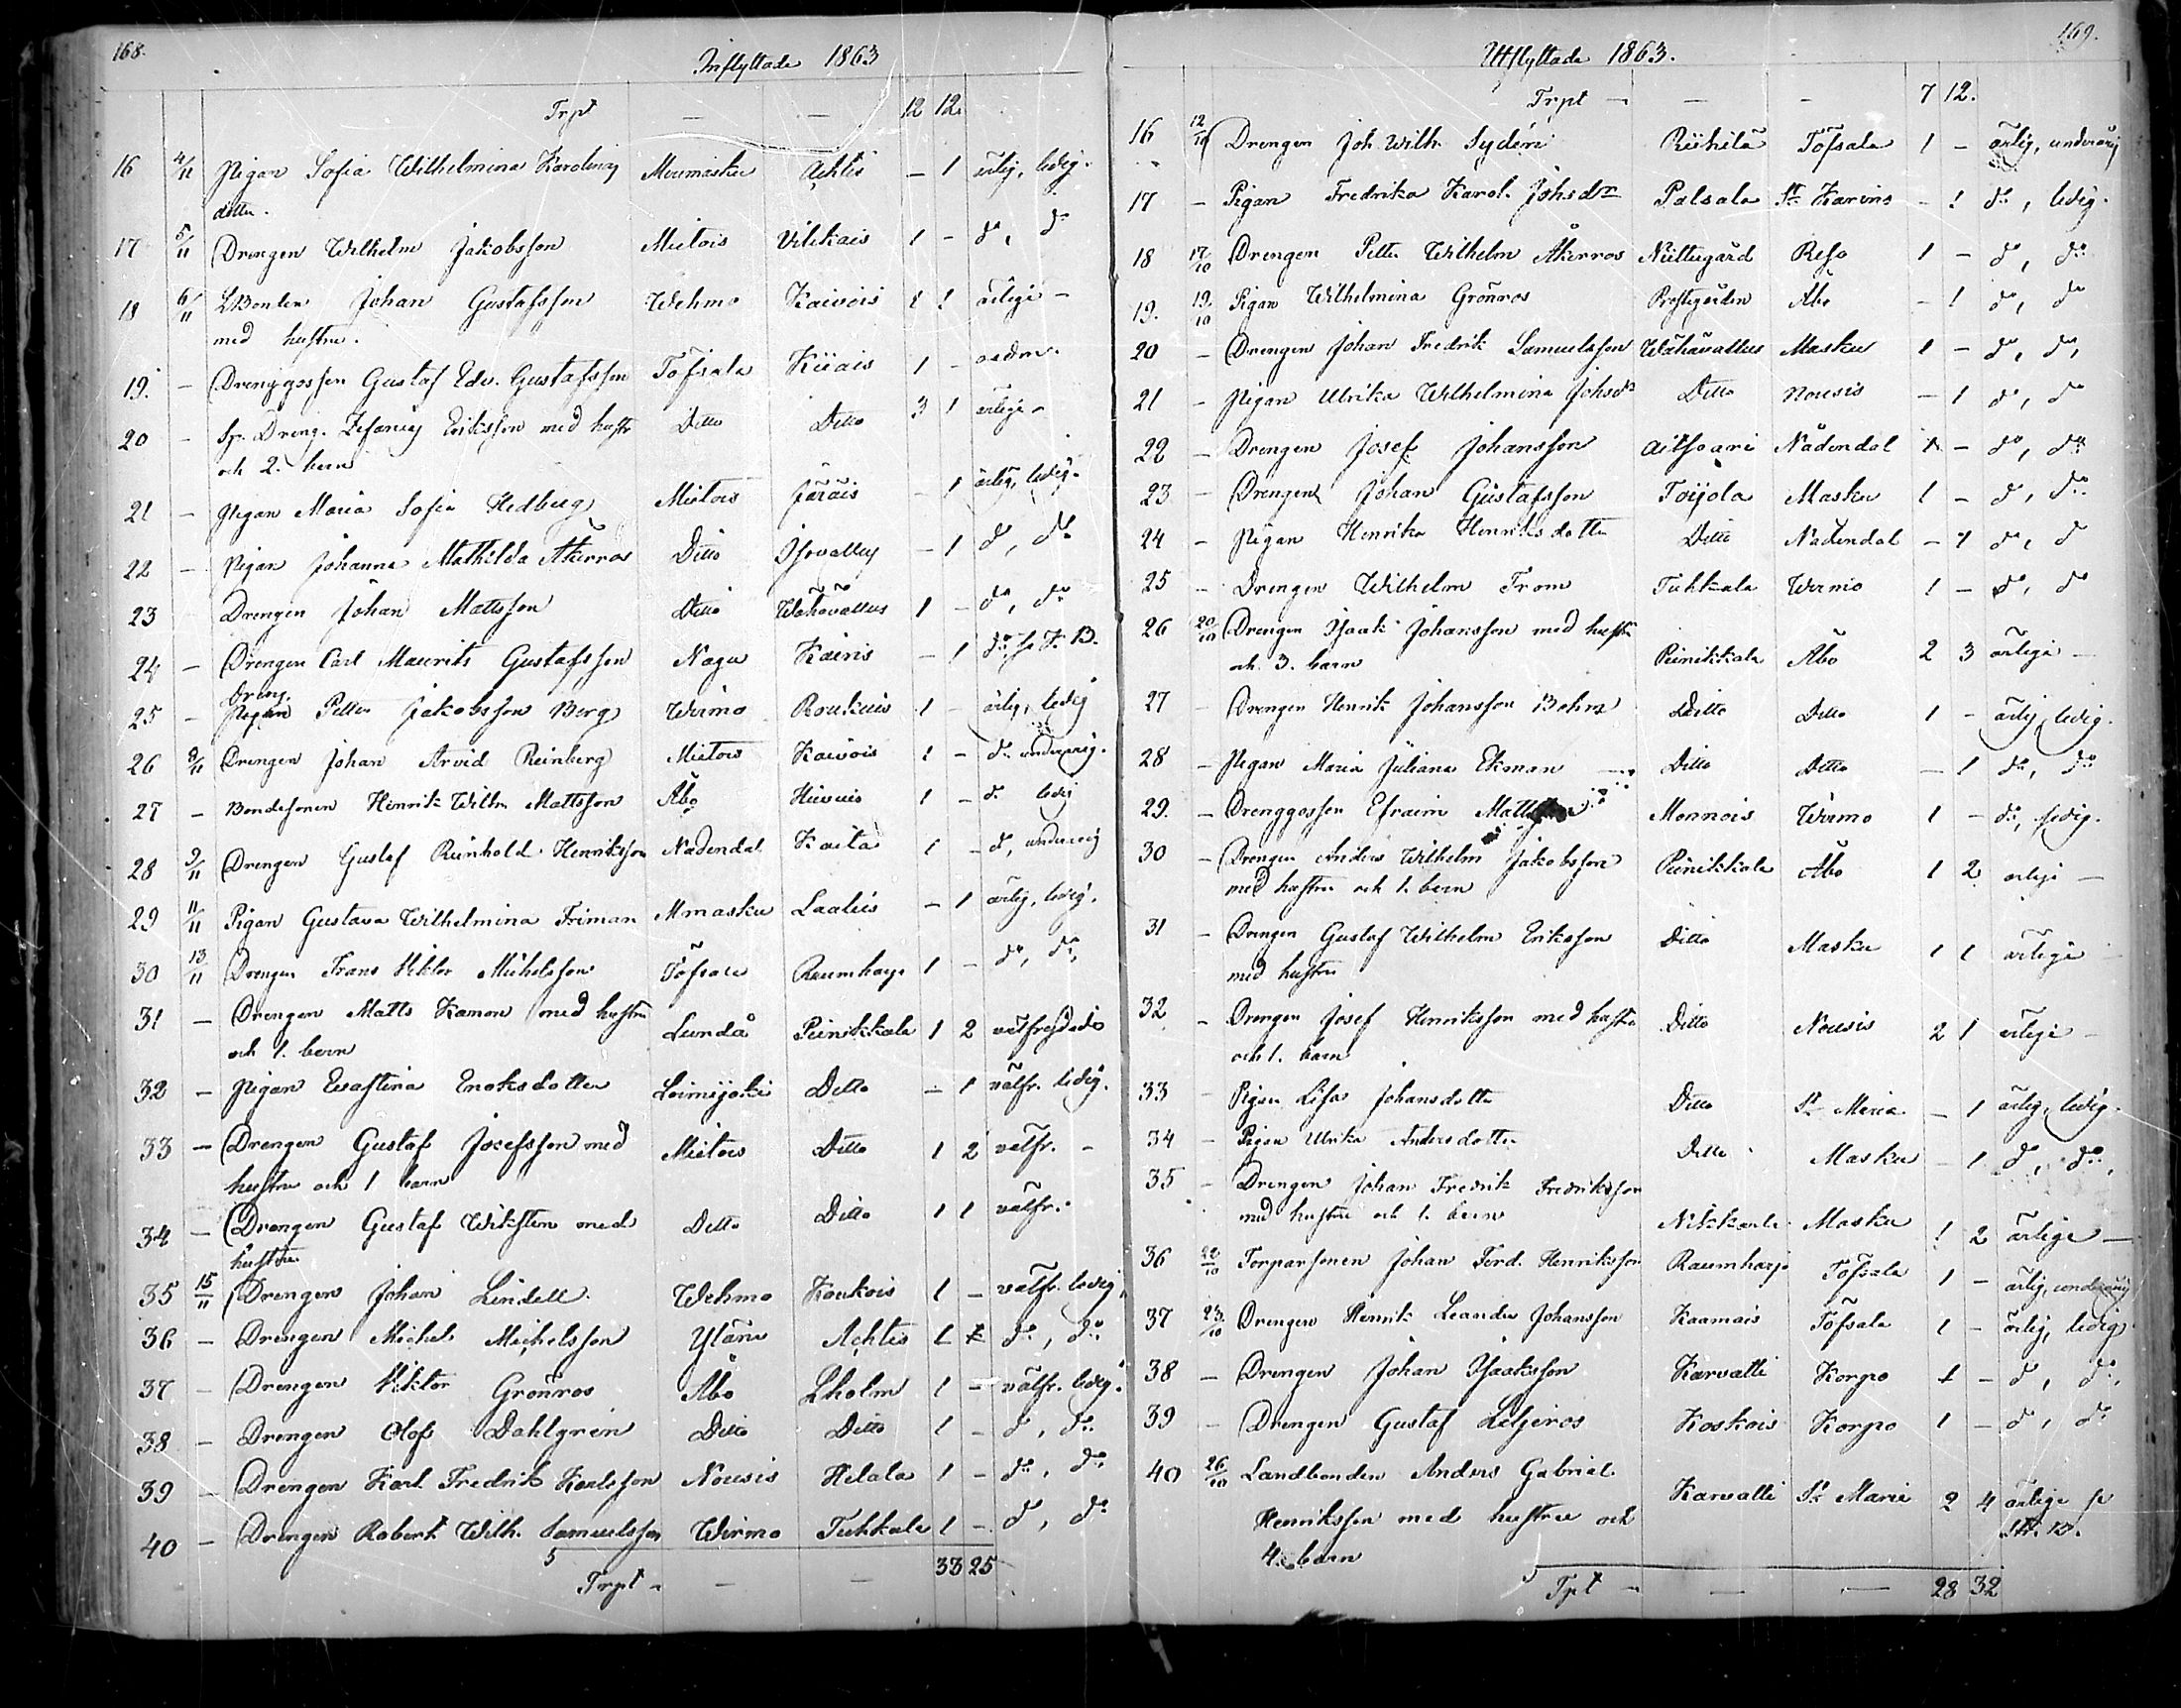 168.
Inflyttade 1863
Trpt — — 12 12.
16 4/11 Pigan Sofia Wilhelmina Karolina Merimasku Ahtis — 1 ärlig, ledig.
dotter.
17 5/11 Drengen Wilhelm Jakobsson Mietois Vilkkais 1 - do, do
18 6/11 LBonden Johan Gustafsson Wehmo Kaivois 1 1 ärlige -
med hustru.
19. - Drenggossen Gustaf Edv. Gustafsson Töfsala Kiiais 1 -
20 - Sp. Dreng. Zefanias Eriksson med hustr Ditto Ditto 3 1 ärlige -
och 2. barn
21 - Pigan Maria Sofia Hedberg Mietois Järäis - 1 ärlig, ledig.
22 - Pigan Johanna Mathilda Åkerros Ditto Isovalley - 1 do, do
23 Drengen Johan Mattsson Ditto Wähävallus 1 - do, do
24 - Drengen Carl Maurits Gustafsson Nagu Kairis - 1 do
25 - Dreng. Pigan Petter Jakobsson Berg Wirmo Roukuis 1 - ärlig, ledig
26 8/11 Drengen Johan Arvid Reinberg Mietois Kaivois 1 - do underårig.
27 - Bondesonen Henrik Wilhm Mattsson Åbo Hiivuis 1 - do ledig
28 9/11 Drengen Gustaf Reinhold Henriksson Nådendal Kaita 1 - do, underårig
29 11/11 Pigan Gustava Wilhelmina Friman Mmasku Laalüs - 1 ärlig, ledig.
30 13/11 Drengen Frans Viktor Michelsson Töfsala Raumharju 1 - do, do
31 - Drengen Matts Kanon med hustru Lundå Piinikkala 1 2 välfrejdade
och 1. barn
32 - Pigan Evastina Enoksdotter Loimijoki Ditto - 1 välfr. ledig.
33 - Drengen Gustaf Josefsson med Mietois Ditto 1 2 välfr. -
hustru och 1 barn
34 - Drengen Gustaf Wiksten med Ditto Ditto 1 1 välfr.
hustru
35 15/11 Drengen Johan Lindell Wehmo Koukois 1 - välfr. ledig,
36 - Drengen Michel Michelsson Yläne Achtis 1 - do, do
37 - Drengen Viktor Grönros Åbo Lholm 1 - välfr. ledig.
38 - Drengen Olof Dahlgren Ditto Ditto 1 - do, do
39 - Drengen Karl Fredrik Karlsson Nousis Helala 1 - do, do
40 - Drengen Robert Wilh. Samuelsson Wirmo Tuhkala 1 - do, do
Trpt - — — 33 25
169.
Utflyttade 1863.
Trpt - — - 7 12.
16 12/10 Drengen Joh. Wilh. Sydén Riihilä Töfsala 1 - ärlig, underårig
17 - Pigan Fredrika Karol. Johsdtr Palsala St Karins - 1 do, ledig.
18 17/10 Drengen Petter Wilhelm Åkerros Niittugård Reso 1 - do, do
19. 19/10 Pigan Wilhelmina Grönros Prestgården Åbo - 1 do, do
20 - Drengen Johan Fredrik Samuelsson Wähävallus Masku 1 - do, do,
21 - Pigan Ulrika Wilhelmina Johsdr Ditto Nousis - 1 do, do
22 - Drengen Josef Johansson Aitsaari Nådendal 1 - do, do
23 - Drengen Johan Gustafsson Toijola Masku 1 - do, do
24 - Pigan Henrika Henriksdotter Ditto Nådendal - 1 do, do
25 - Drengen Wilhelm From Tuhkala Wirmo 1 - do, do
26 20/10 Drengen Isaak Johansson med hustru
och 3. barn Piinikkala Åbo 2 3 ärlige —
27 - Drengen Henrik Johansson Bohm Ditto Ditto 1 - ärlig, ledig.
28 - Pigan Maria Juliana Ekman — Ditto Ditto - 1 do, do
29. - Drenggossen Efraim Mattsson Monnois Wirmo 1 - do, ledig.
30 - Drengen Anders Wilhelm Jakobsson Piinikkala Åbo 1 2 ärlige —
med hustru och 1. barn
31 - Drengen Gustaf Wilhelm Eriksson Ditto Masku 1 1 ärlige —
med hustru
32 - Drengen Josef Henriksson med hustru Ditto Nousis 2 1 ärlige -
och 1. barn
33 - Pigan Lisa Johansdotter Ditto St Maria - 1 ärlig, ledig.
34 - Pigan Ulrika Andersdotter Ditto Masku - 1 do, do,
35 - Drengen Johan Fredrik Fredriksson
med hustru och 1. barn Nikkarla Masku 1 2 ärlige —
36 22/10 Torparsonen Johan Ferd. Henriksson Raumharju Töfsala 1 - ärlig, underårig
37 23/10 Drengen Henrik Leander Johansson Kaamais Töfsala 1 - ärlig, ledig.
38 - Drengen Johan Isaaksson Karvatti Korpo 1 - do, do,
39 - Drengen Gustaf Liljeros Koskois Korpo 1 - do, do
40 26/10 Landbonden Anders Gabriel
Henriksson med hustru och Karvatti St Marie 2 4 ärlige
4. barn
Tpt - — — 28 32